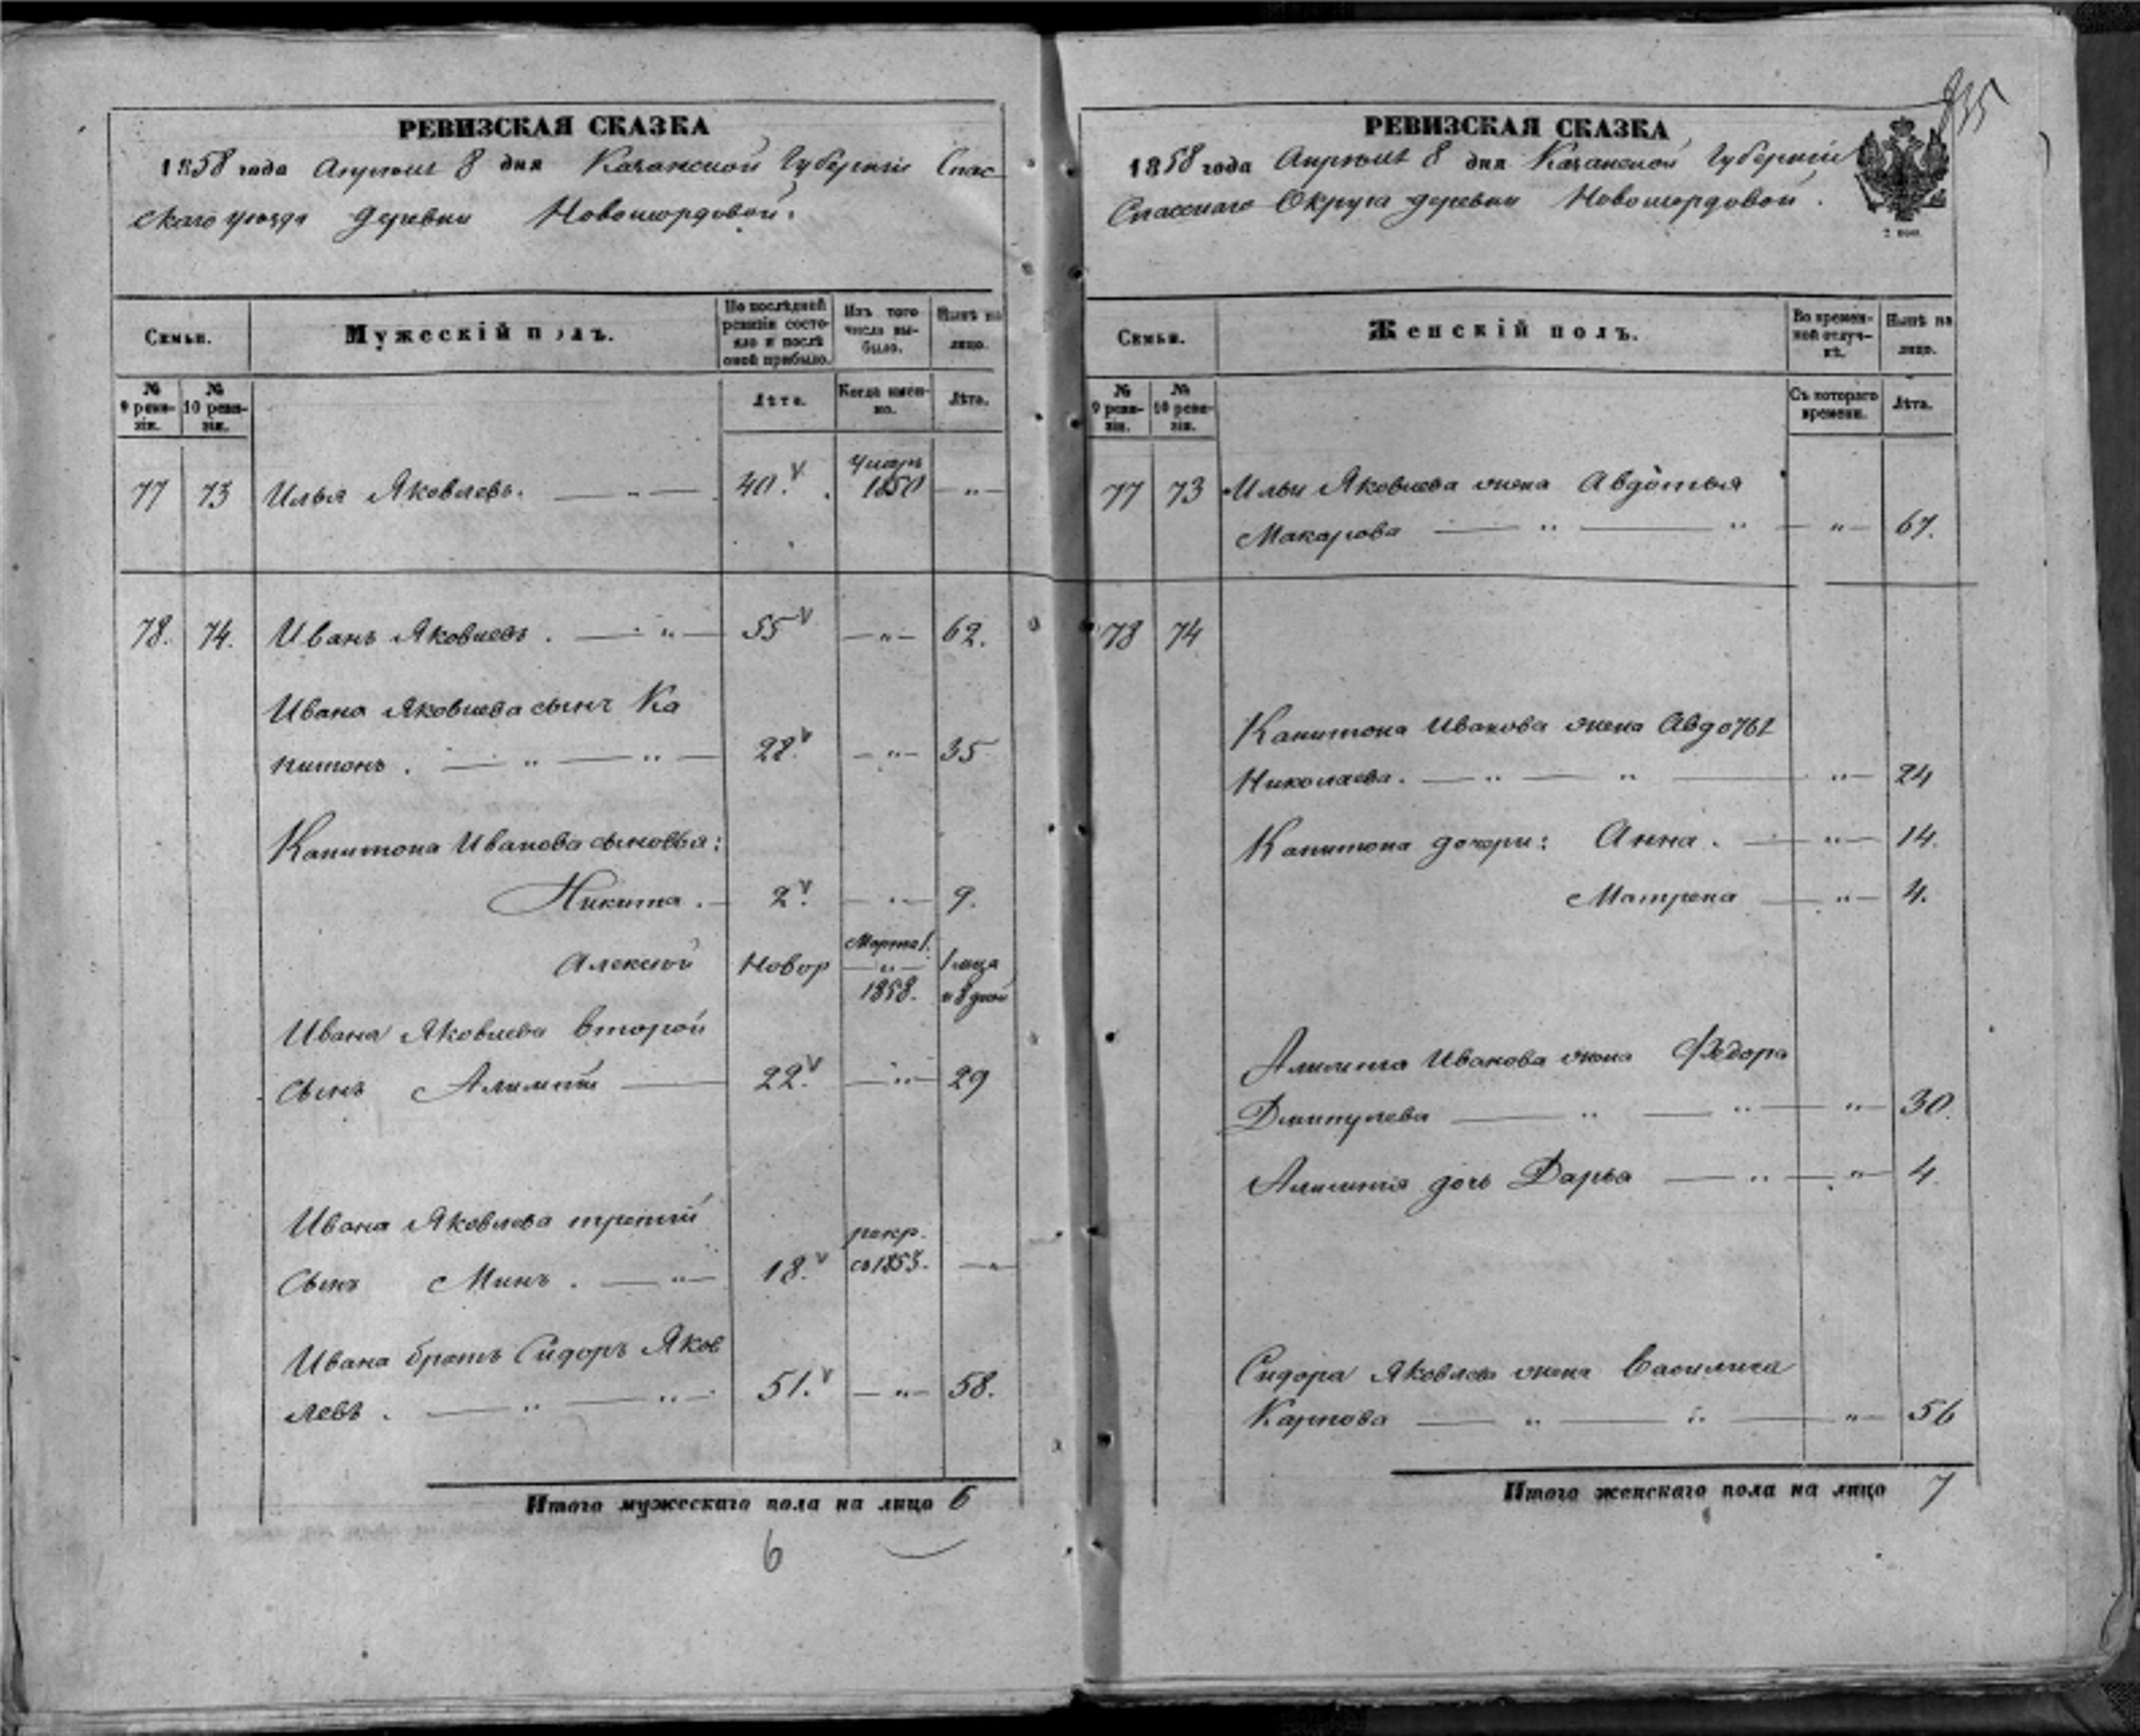 РЕВИЗСКАЯ СКАЗКА
1858 года Апреля 8 дня Казанской Губернiи Спас
скаго уѣзда деревни Новошордовой.
Семьи.
Мужескiй полъ.
По послѣдней ревизiи состояло и послѣ оной прибыло.
Изъ того числа выбыло.
Нынѣ на лицо.
№ 9 ревизiи.
№ 10 ревизiи.
Лѣта.
Когда именно.
Лѣта.
77 73 Илья Яковлевъ. 40. умеръ 1850 — " —
78. 74. Иванъ Яковлевъ. — " — 55 — " — 62.
Ивана Яковлева сынъ Ка
питонъ. — " — " — 28. — " — 35
Капитона Иванова сыновья:
Никита. — 2. — " — 9.
Алексѣй Новор Марта 1. 1858. 1 мца и 8 дней
Ивана Яковлева второй
сынъ Алимпiй — 22. — " — 29
Ивана Яковлева третiй
сынъ Минъ. — " — 18. рекр. съ 1853. — " —
Ивана братъ Сидоръ Яков
левъ. — " — " — 51. — " — 58.
Итого мужескаго пола на лицо 6
6
835
РЕВИЗСКАЯ СКАЗКА
1858 года Апреля 8 дня Казанской Губернiи
Спасскаго Округа деревни Новошордовой.
2 коп.
Семьи.
Женскiй полъ.
Во временной отлучкѣ.
Нынѣ на лицо.
№ 9 ревизiи.
№ 10 ревизiи.
Съ котораго времени.
Лѣта.
77 73 Ильи Яковлева жена Авдотья
Макарова — " — " — " — 67.
78 74
Капитона Иванова жена Авдотья
Николаева. — " — " — " — 24
Капитона дочери: Анна. — " — 14.
Матрена — " — 4.
Алимпiя Иванова жена Федора
— " — " — " — 30.
Алимпiя дочь Дарья — " — " — 4.
Сидора Яковлева жена Василиса
Карпова — " — " — " — 56
Итого женскаго пола на лицо 7